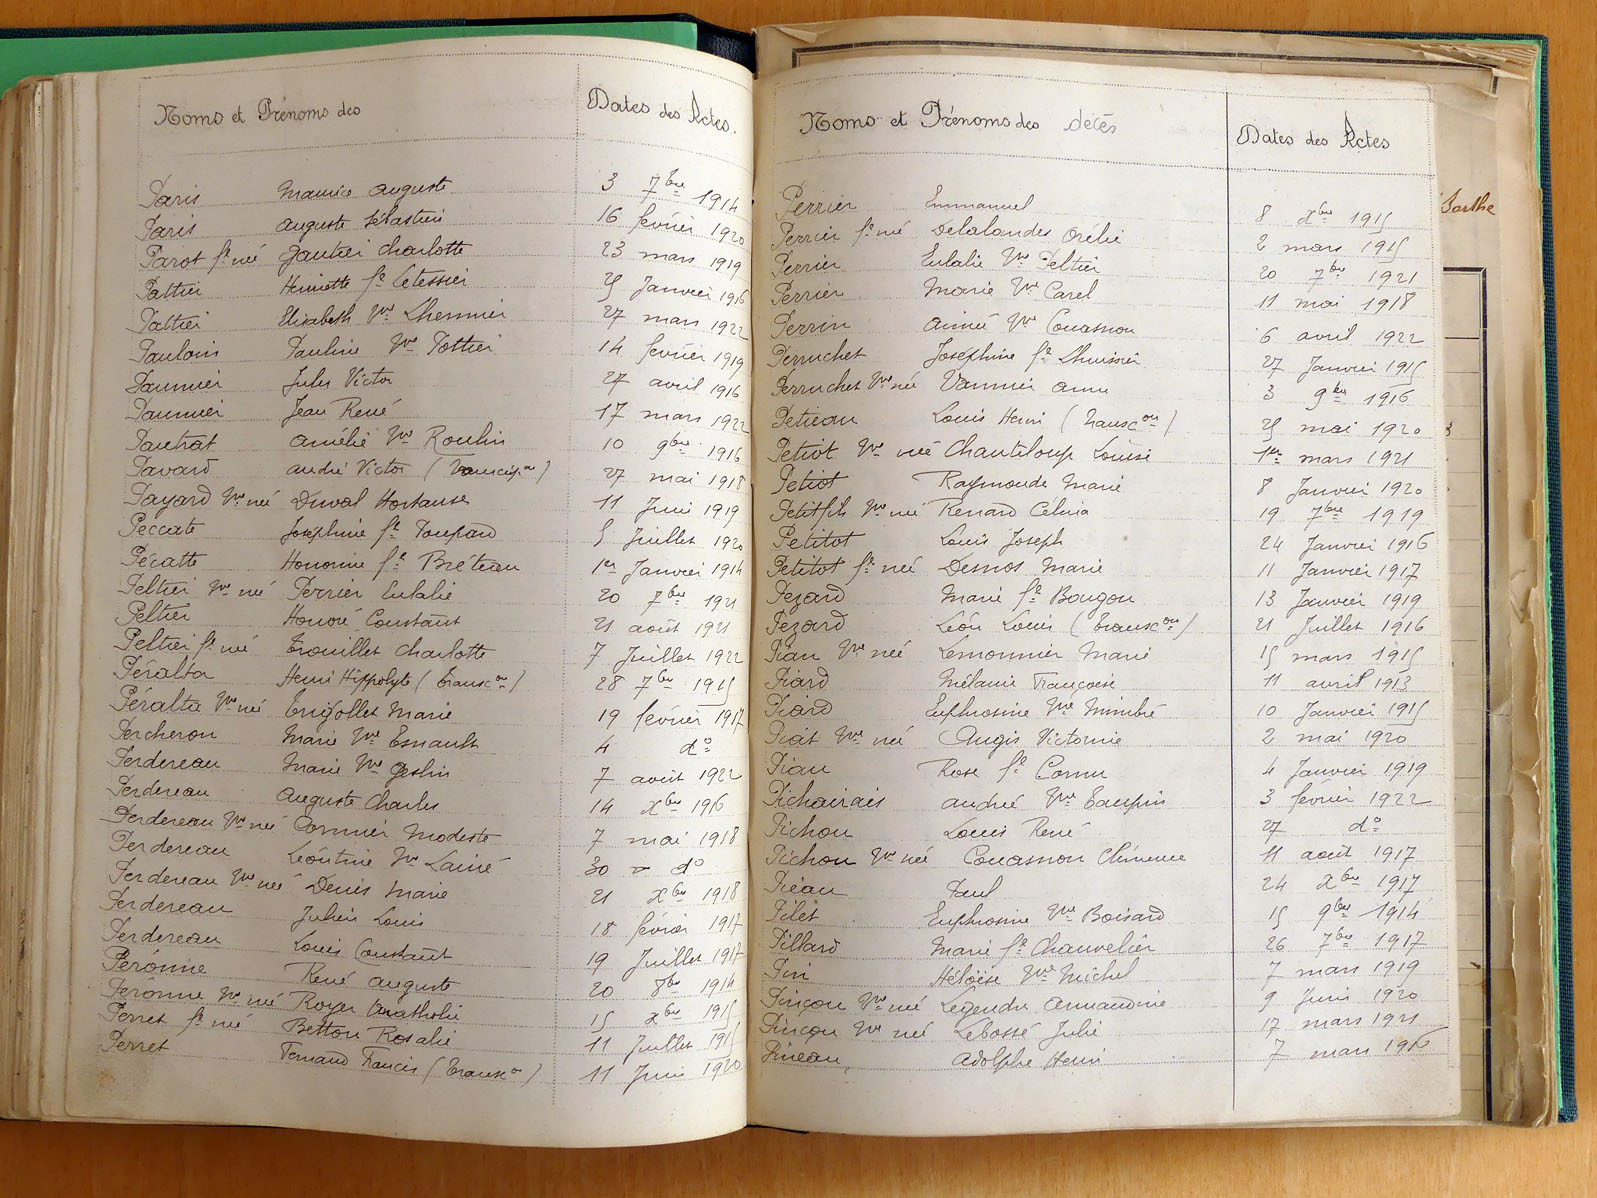 Noms et Prénoms des
Dates des Actes.
Paris Maurice Auguste 3 7bre 1914
Paris Auguste Sébastien 16 février 1920
Parot fe née Gautier Charlotte 23 mars 1919
Pattier Henriette fe Letessier 25 Janvier 1916
Pattier Elisabeth Vve Lhermier 27 mars 1922
Paulouin Pauline Vve Pottier 14 février 1919
Paumier Jules Victor 27 avril 1916
Paumier Jean René 17 mars 1922
Pautrat Amélie Vve Roulin 10 9bre 1916
Pavard André Victor ( 27 mai 1918
Payard Vve née Duval Hortanse 11 Juin 1919
Peccate Joséphine fe Poupard 5 Juillet 1920
Pécatte Honorine fe Bréteau 1er Janvier 1914
Peltier Vve née Perrier Eulalie 20 7bre 1921
Peltier Honoré Constant 21 août 1921
Peltier fe née Trouillet Charlotte 7 Juillet 1922
Péralta Henri Hippolyte (Transcon) 28 7bre 1915
Péralta Vve née Trigollet Marie 19 février 1917
Percheron Marie Vve Esnault 4 do
Perdereau Marie Vve Geslin 7 août 1922
Perdereau Auguste Charles 14 Xbre 196
Perdereau Vve née Cormier Modeste 7 mai 1918
Perdereau Léontine Vve Lainé 30 do
Perdereau Vve née Denis Marie 21 Xbre 1918
Perdereau Julien Louis 18 février 1917
Perdereau Louis Constant 19 Juillet 1917
Péronne René Auguste 20 8bre 1914
Péronne Vve née Royer Anatholie 15 Xbre 1915
Perret fe née Betton Rosalie 11 Juillet 1915
Perret Fernand Francis (Transcon) 11 Juin 1920
Noms et Prénoms des décés
Dates des Actes
Perrier Emmanuel 8 Xbre 1915
Perrier fe née Delalandes Orélie 2 mars 1915
Perrier Eulalie Vve Peltier 20 7bre 1921
Perrier Marie Vve Carel 11 mai 1918
Perrin Aimée Vve Couasnon 6 avril 1922
Perruchet Joséphine fe Lhuissier 27 Janvier 1915
Perruchet Vve née Vannier Anne 3 9bre 1916
Petreau Louis Henri (Transcon) 25 mai 1920
Petiot Vve née Chanteloup Louise 1er mars 1921
Petiot Raymonde Marie 8 Janvier 1920
Petitfils Vve née Renard Célina 19 7bre 1919
Petitot Louis Joseph 24 Janvier 1916
Petitot fe née Desnos Marie 11 Janvier 1917
Pezard Marie fe Bougon 13 Janvier 1919
Pezard Léon Louis (Transcon) 21 Juillet 1916
Pian Vve née Lemonnier Marie 15 mars 1915
Piard Mélanie Françoise 11 avril 1913
Piard Euphrosine Vve Mimbré 10 Janvier 1915
Piat Vve née Augis Victorine 2 mai 1920
Piau Rose fe Cornu 4 Janvier 1919
Pichairais André Vve Taupin 3 février 1922
Pichon Louis René 27 do
Pichon Vve née Couasnon Clémence 11 août 1917
Piéau Paul 24 Xbre 1917
Pilet Euphrosine Vve Boisard 15 9bre 1914
Pillard Marie fe Chauvelier 26 7bre 1917
Pin Héloïse Vve Michel 7 mars 1919
Pinçon Vve née Legendre Armandine 9 Juin 1920
Pinçon Vve née Lebossé Julie 17 mars 1921
Pineau Adolphe Henri 7 mars 1916
Sarthe